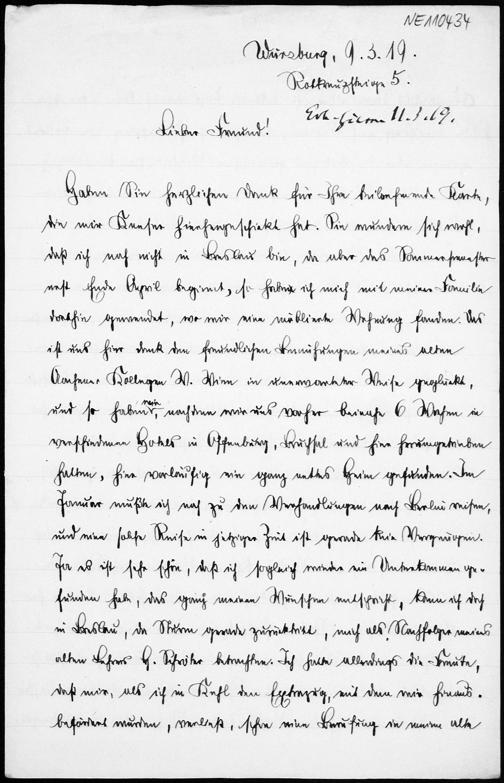 NE110434
Würzburg, 9.3.19.
Rotkreuzsteige 5.
Erh. 11.3.19.
Lieber Freund!
Haben Sie herzlichen Dank für Ihre teilnehmende Karte,
die mir Kneser hierhergeschickt hat. Sie wundern sich wohl,
daß ich noch nicht in Breslau bin, da aber das Sommersemester
erst Ende April beginnt, so haben ich mich mit meiner Familie
dorthin gewendet, wo wir eine möblierte Wohnung fanden. Das
ist uns hier dank den freundlichen Bemühungen meines alten
Aachener Kollegen W. Wien in unerwarteter Weise geglückt,
und so haben wir, nachdem wir uns vorher beinahe 6 Wochen in
verschiedenen Hotels in Offenburg, Bruchsal und hier herumgetrieben
hatten, hier vorläufig ein ganz nettes Heim gefunden. Im
Januar mußte ich noch zu den Verhandlungen nach Berlin reisen,
und eine solche Reise in jetziger Zeit ist gerade kein Vergnügen.
Ja es ist sehr schön, daß ich sogleich wieder ein Unterkommen ge-
funden habe, das ganz meinen Wünschen entspricht, kann ich doch
in Breslau, da Sturm gerade zurücktritt, mich als Nachfolger meines
alten Lehrers H. Schröter betrachten. Ich hatte allerdings die Freude,
daß mir, als ich in Kehl den Extrazug, mit dem wir hinaus-
befördert wurden, verließ, schon eine Berufung in meine alte